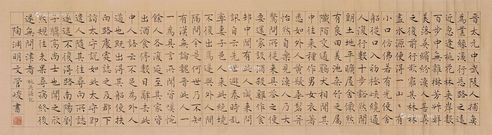 晉太元中武陵人捕魚
為業緣溪行忘路之遠
近忽逢桃花林夾岸數
百步中無雜樹芳草鮮
美落英繽紛漁人甚異
之復前行欲窮其林林
盡水源便得一山山有
小口仿佛若有光便舍
船從口入初極狹纔通
人復行數十步豁然開
朗土地平曠屋舍儼然
有良田美池桑竹之屬
阡陌交通雞犬相聞其
中往來種作男女衣著
悉如外人黃髮垂髫並
怡然自樂見漁人乃大
驚問所從來具答之便
要還家設酒殺雞作食
村中聞有此人咸來問
訊自云先世避秦時亂
率妻子邑人來此絕境
不復出焉遂與外人間
隔問今是何世乃不知
有漢無論魏晉此人一
一為具言所聞皆嘆惋
餘人各復延至其家皆
出酒食停數日辭去此
中人語云不足為外人
道也既出得其船便扶
向路處處誌之及郡下
詣太守說如此太守即
遣人隨其往尋向所誌
遂迷不復得路南陽劉
子驥高尚士也聞之欣
然規往未果尋病終後
遂無問津者 桃花源記
陶淵明文 管峻書